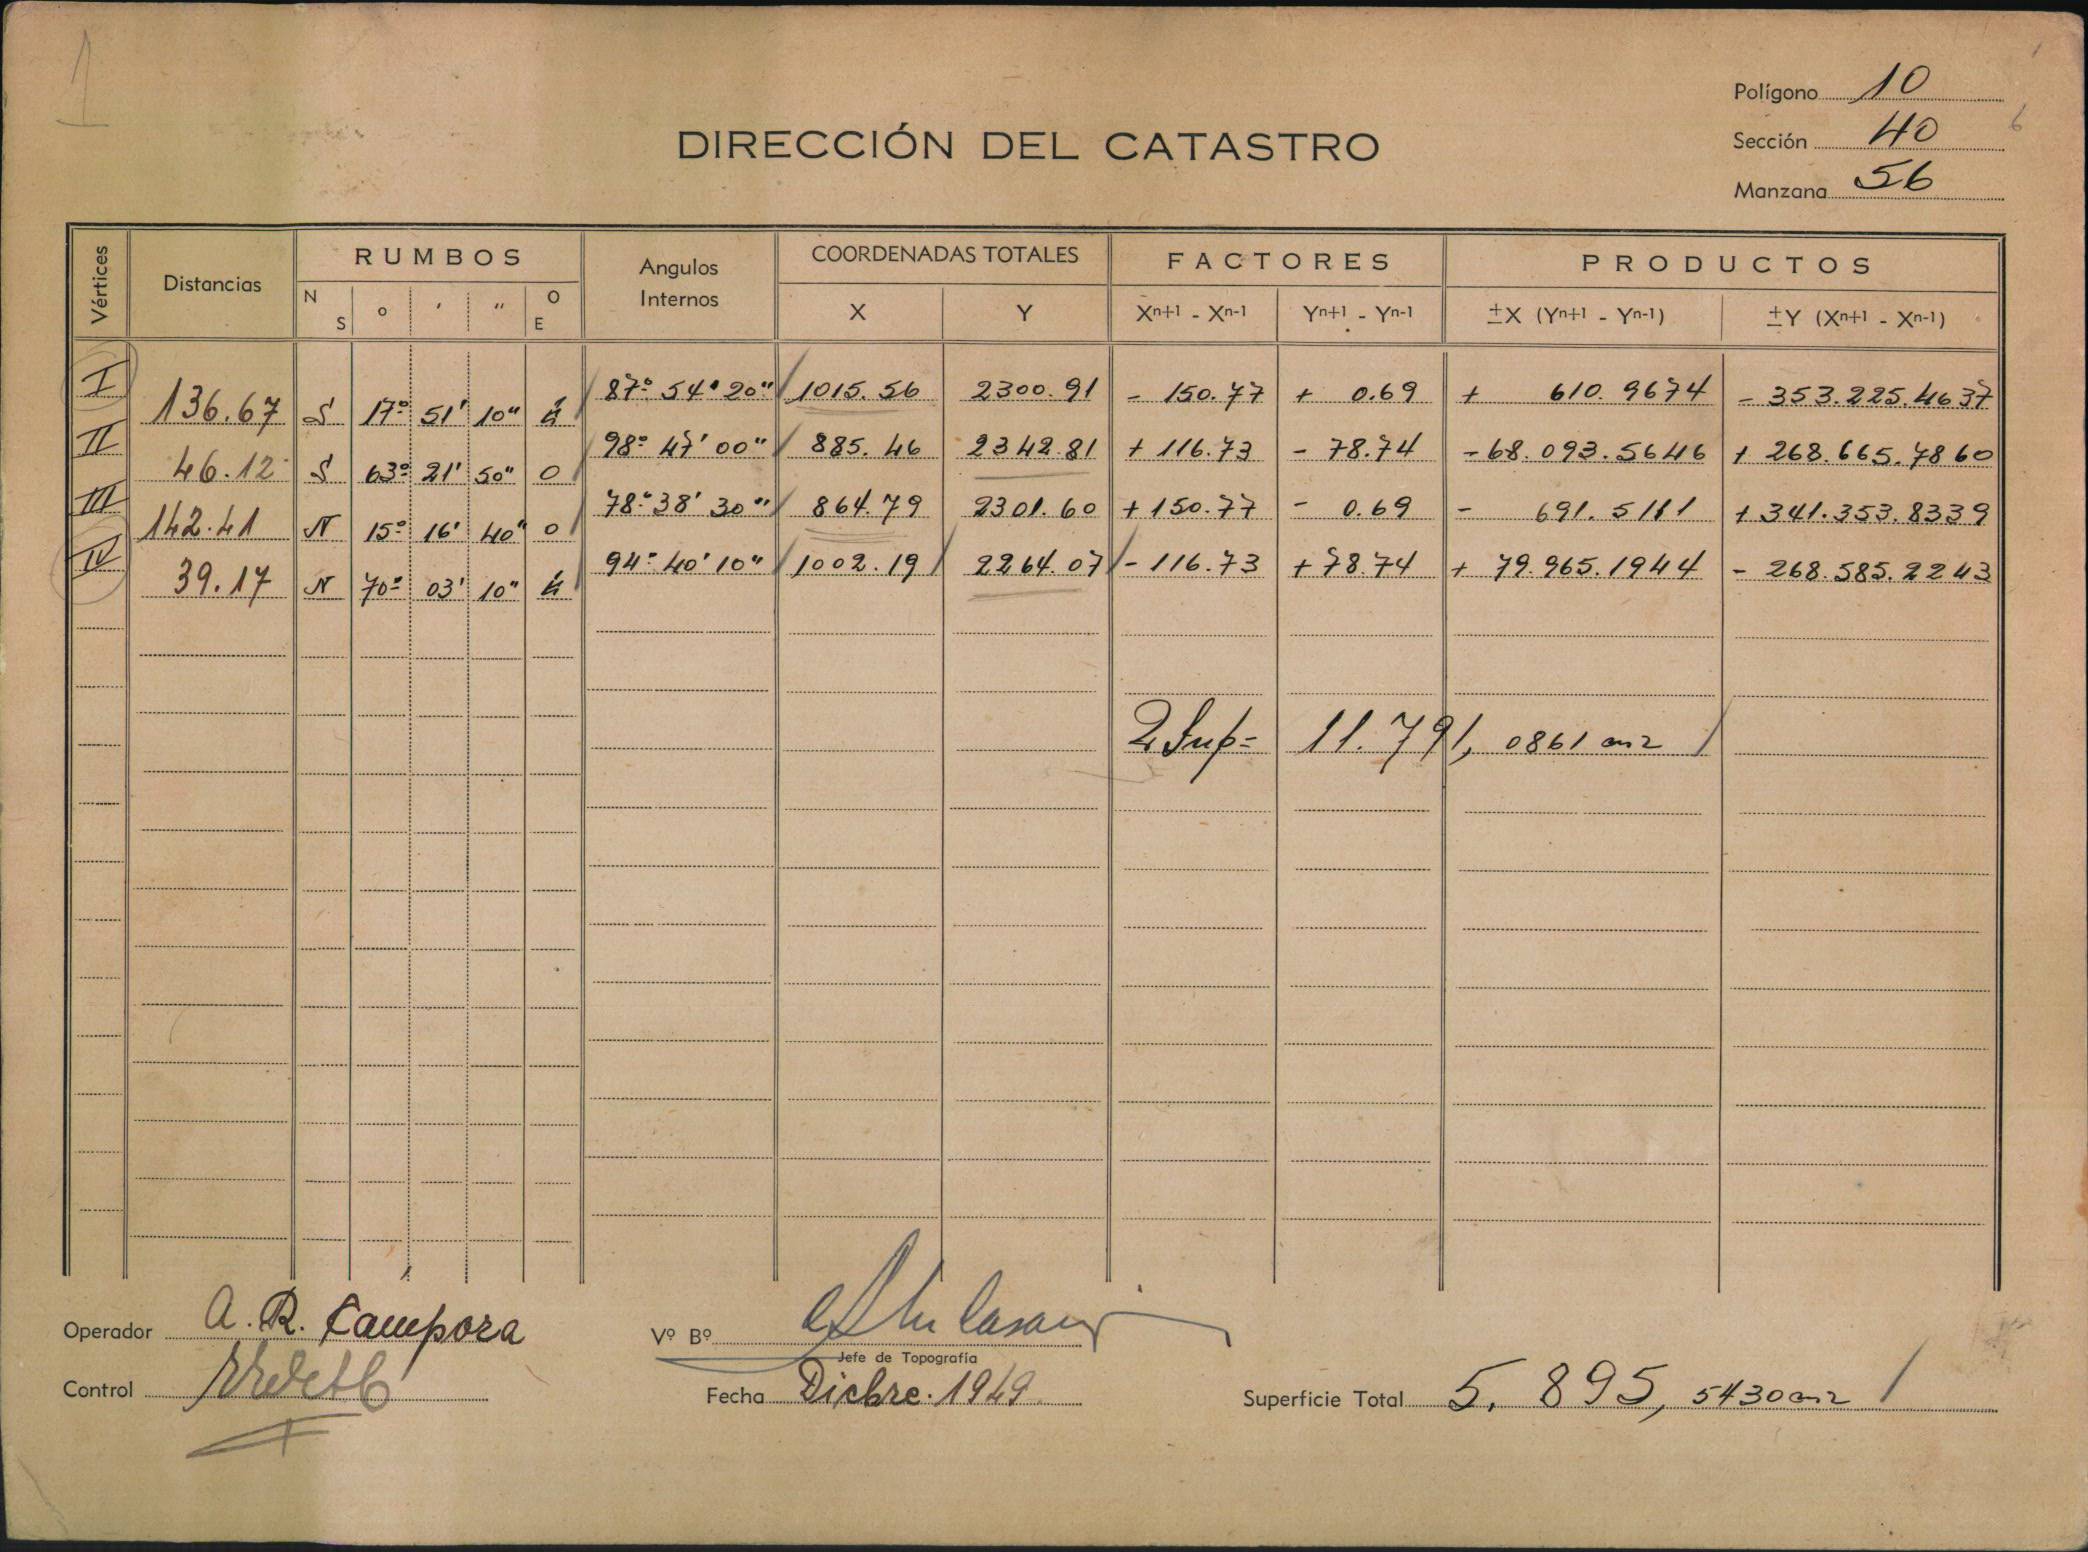 1
Polígono 10
Sección 40
6
Manzana 56
DIRECCIÓN DEL CATASTRO
Vértices Distancias RUMBOS Angulos Internos COORDENADAS TOTALES FACTORES PRODUCTOS
N S o ' " O E X Y Xn+1 - Xn-1 Yn+1 - Yn-1 ±X (Yn+1 - Yn-1) ±Y (Xn+1 - Xn-1)
I 87° 54' 20" 1015.56 2300.91 - 150.77 + 0.69 + 610.9674 - 353.225.4637
136.67 S 17° 51' 10" E
II 98° 47' 00" 885.46 2342.81 + 116.73 - 78.74 - 68.093.5646 + 268.665.7860
46.12 S 63° 21' 50" O
III 78° 38' 30" 864.79 2301.60 + 150.77 - 0.69 - 691.5111 + 341.353.8339
142.41 N 15° 16' 40" O
IV 94° 40' 10" 1002.19 2264.07 - 116.73 + 78.74 + 79.965.1944 - 268.585.2243
39.17 N 70° 03' 10" E
2 Sup= 11.791, 0861 m2
Operador A. R. Campora
Vº Bº
Jefe de Topografía
Control
Fecha Dicbre. 1949
Superficie Total 5.895, 5430 m2